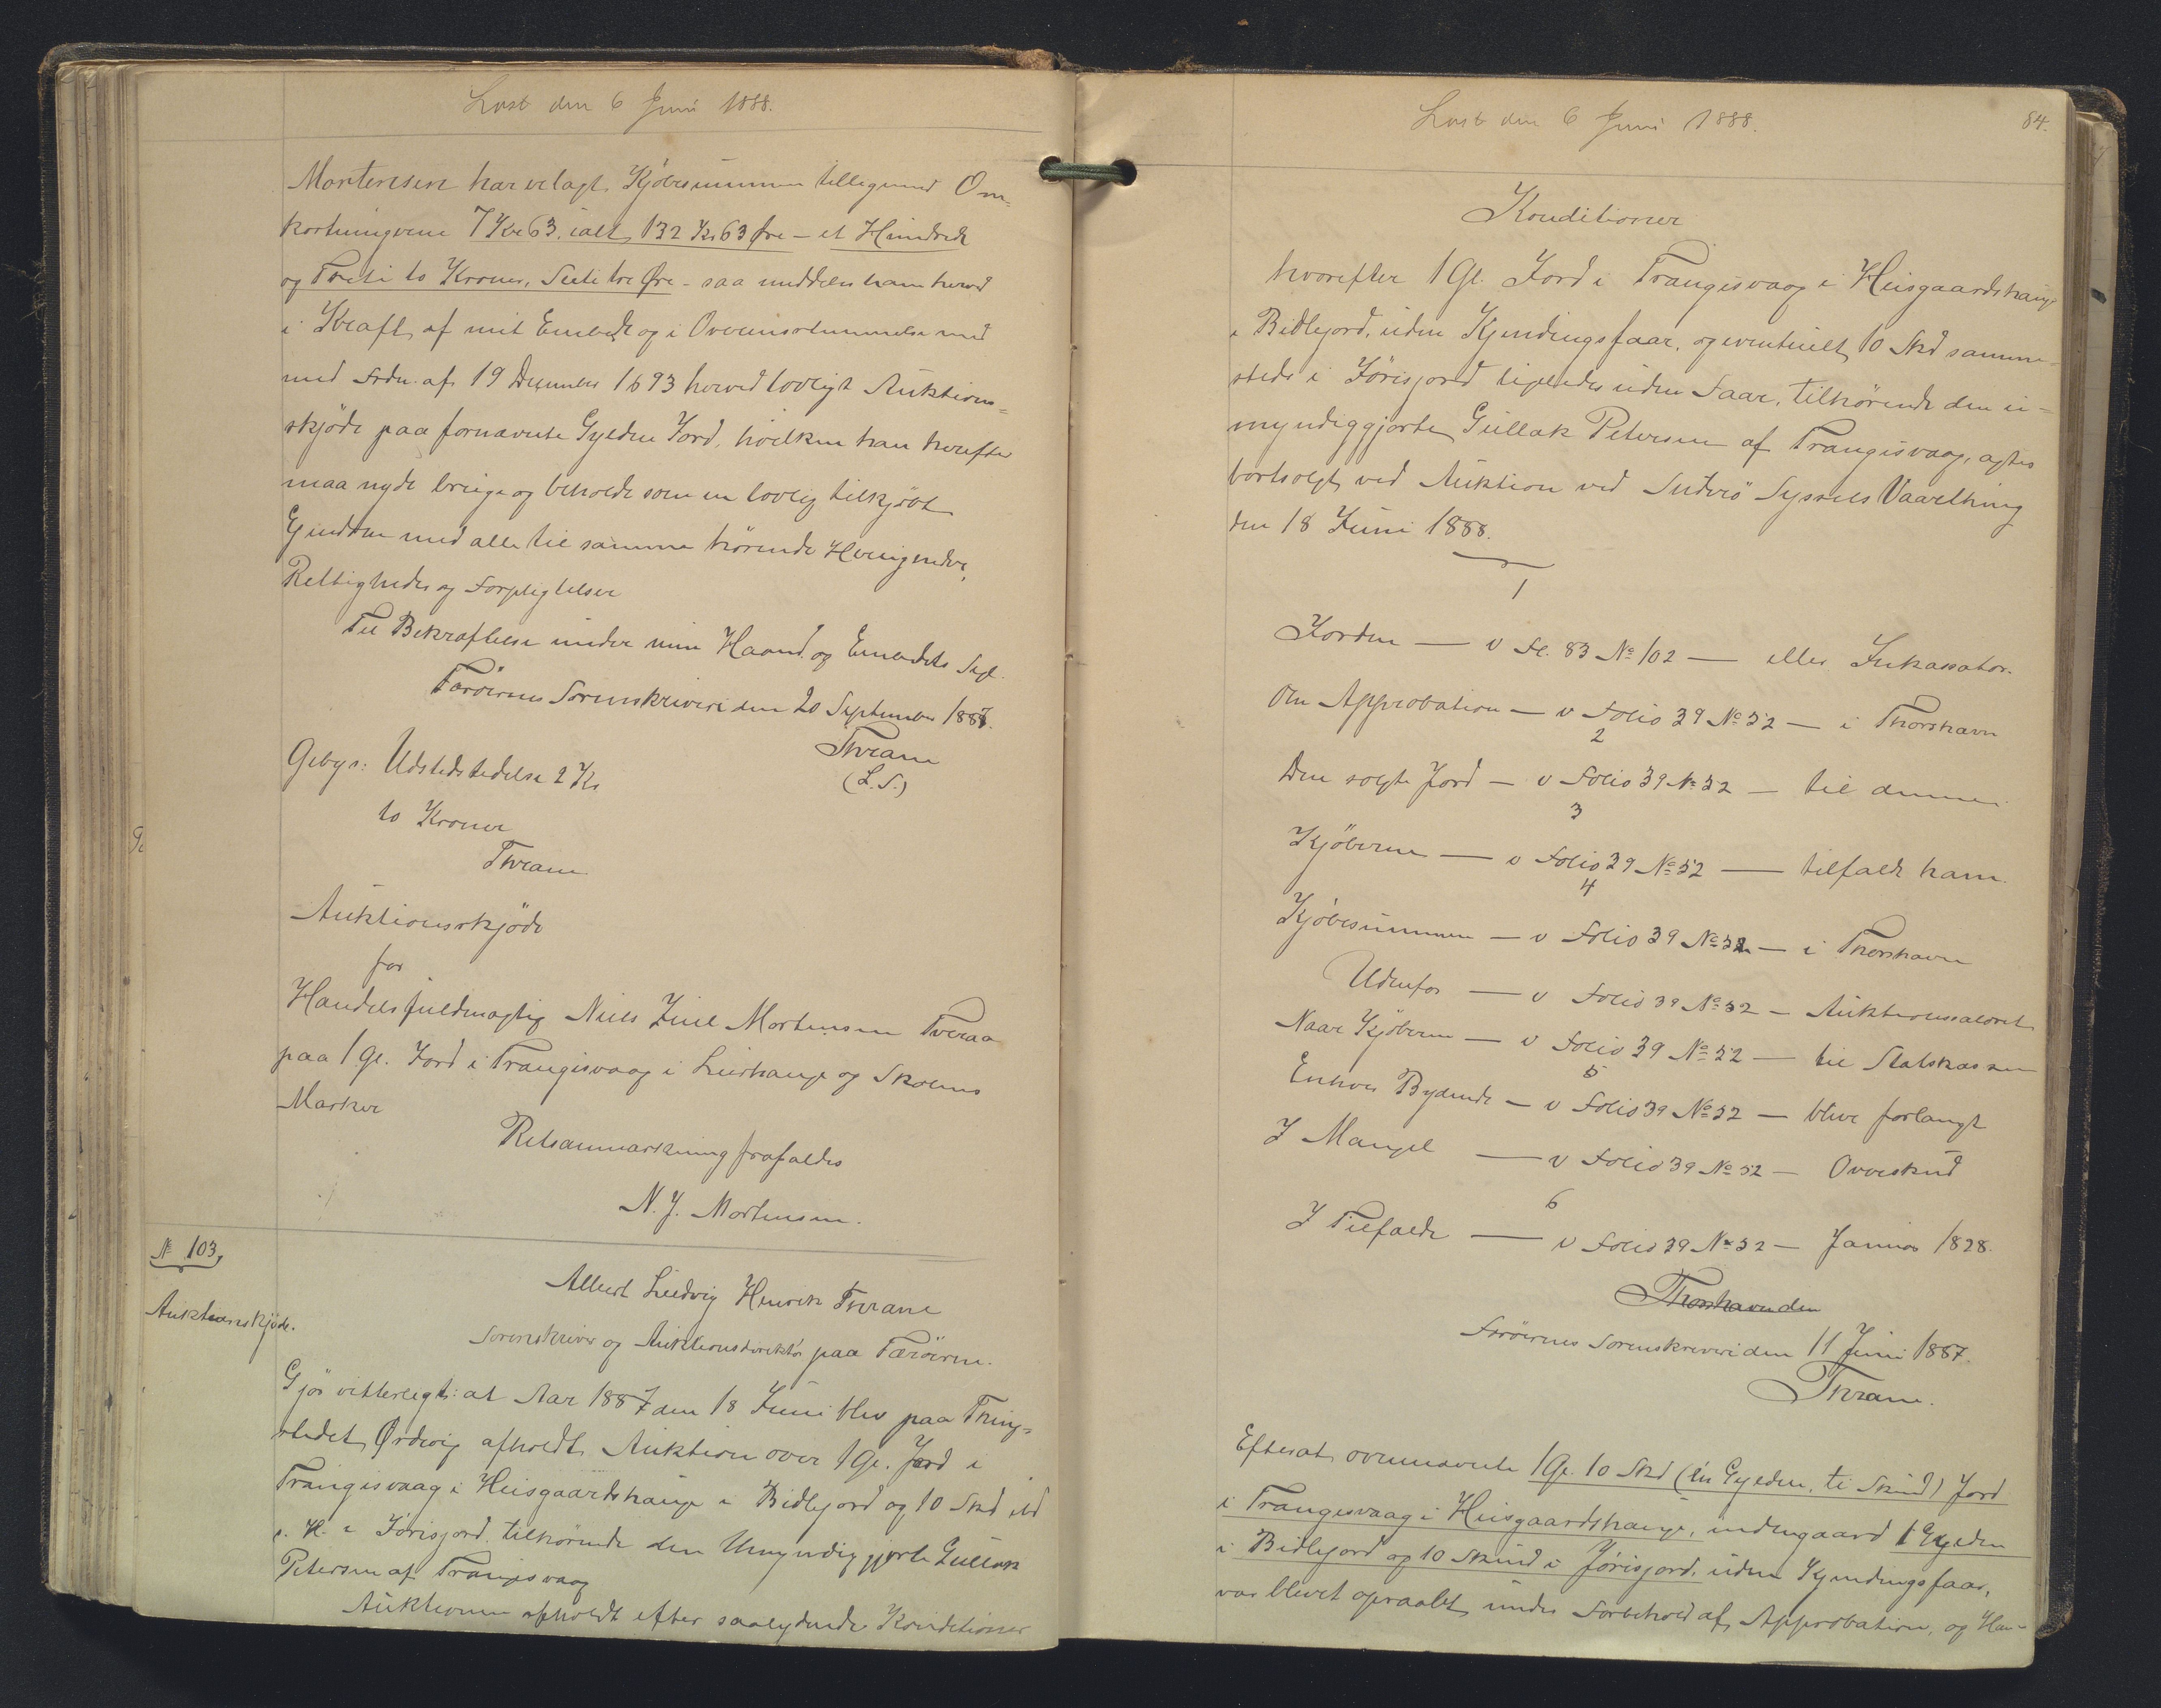 Læst den 6 Juni 1888.
Mortensen har erlagt Kjöbesummen tillegemed Om-
kostningerne 7 Kr 63. ialt 132 Kr 63 Øre - et Hundrede
og Treti to Kroner, Seti tre Øre - saa meddeles ham herved
i Kraft af mit Embede og i Overensstemmelse med
med Frdn. af 19 December 1693 herved lovligt Auktions-
skjöde paa fornævnte Gylden Jord, hvilken han herefter
maa nyde bruge og beholde som en lovlig tilkjöbt
Ejendom med alle til samme hörende Herligheder,
Rettigheder og Forpligtelser
Til Bekræftelse under min Haand og Embedets Segl.
Færöernes Sorenskriveri den 20 September 1887.
Thrane
(L.S.)
Gebyr: Udstedstedelse 2 Kr
to Kroner
Thrane
Auktionsskjöde
for
Handelsfuldmægtig Niels Juul Mortensen Tveraa
paa 1 Gl. Jord i Trangisvaag i Liushauge og Skolens
Marker
Retsanmærkning frafaldes
N. J. Mortensen.
№ 103,
Auktionsskjöde.
Albert Ludvig Henrik Thrane
Sorenskriver og Auktionsdirektör paa Færöerne.
Gjör vitterligt: at Aar 1887 den 18 Juni blev paa Thing-
stedet Ördevig afholdt Auktion over 1 Gl. Jord i
Trangisvaag i Heisgaardshauge i Bidlejord og 10 Skd ibd
i. H. i Jörisjord. tilhörende den Umyndiggjorte Gullak
Petersen af Trangisvaag
Auktionen afholdt efter saalydende Konditioner
Læst den 6 Juni 1888.
84.
Konditioner
hvorefter 1 Gl. Jord i Trangisvaag i Heisgaardshauge
i Bidlejord, uden Kjendingsfaar, og eventuelt 10 Skd samme-
steds i Jörisjord ligeledes uden Faar, tilhörende den u-
myndiggjorte Gullak Petersen af Trangisvaag, agtes
bortsolgt ved Auktion ved Suderö Syssels Vaarthing
den 18 Juni 1888.
1
Jorden — v Fl. 83 № 102 — eller Inkassator.
Om Approbation — v Folio 39 № 52 — i Thorshavn
2
Den solgte Jord — v Folio 39 № 52 — til denne
3
Kjöberne — v Folio 39 № 52 — tilfalde ham.
4
Kjöbesummen — v Folio 39 № 52 — i Thorshavn
Udenfor — v Folio 39 № 52 — Auktionssalæret
Naar Kjöberen — v Folio 39 № 52 — til Statskassen
5
Enhver Bydende — v Folio 39 № 52 — blive forlangt
I Mangel — v Folio 39 № 52 — Overskud
6
I Tilfælde — v Folio 39 № 52 — Januar 1828.
Thorshavn den
Færöernes Sorenskriveri den 11 Juni 1887.
Thrane.
Efterat ovennævnte 1 Gl. 10 Skd (én Gylden, ti Skind) Jord
i Trangisvaag i Heisgaardshauge, indengaard 1 Gylden
i Bidlejord og 10 Skind i Jörisjord, uden Kjendingsfaar,
var blevet opraabt under Forbehold af Approbation, og Han-